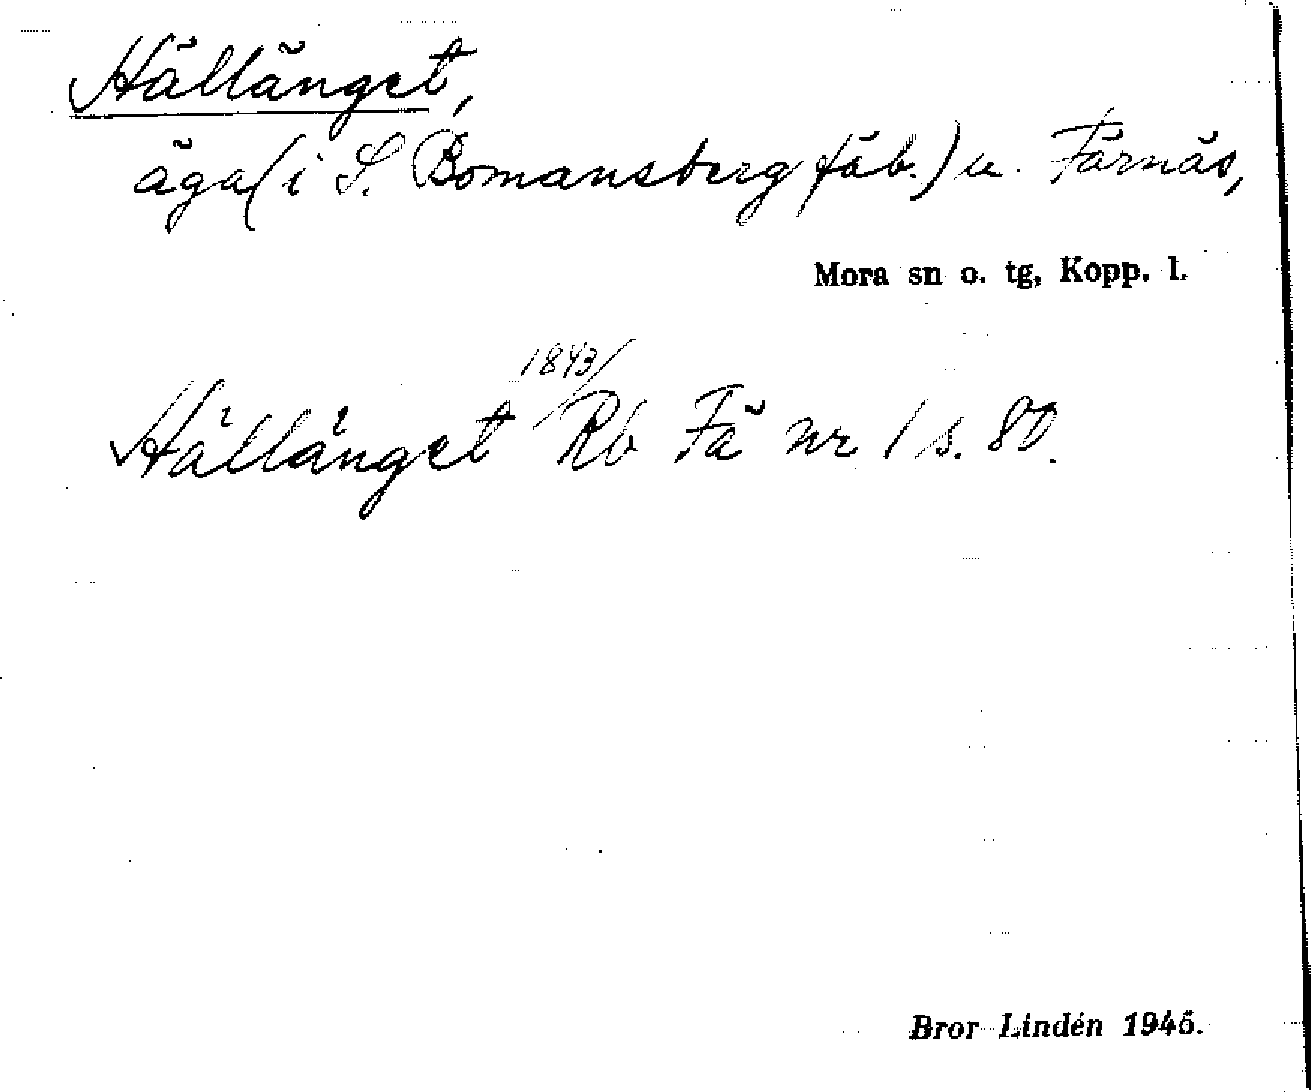 Hälläng​et,
äga (i S. Bomansberg fäb.) u. Färnäs,
Mora sn o. tg, Kopp. l.
1843/
Hällänget Rb Fä nr 1 s. 80.
Bror Lindén 1946.